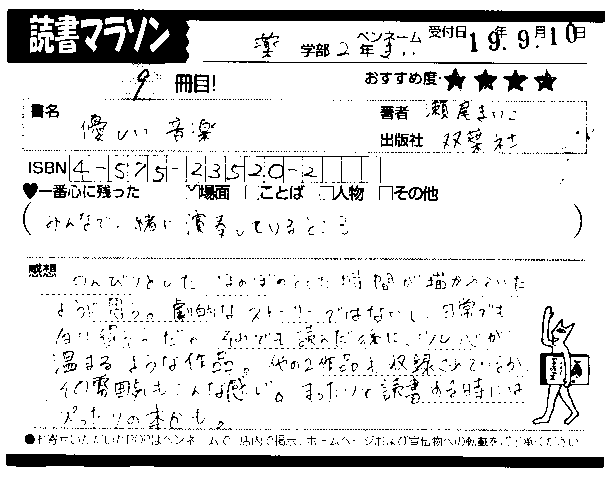 読書マラソン
薬 学部 2年 ペンネーム まい 受付日 19年9月10日
9 冊目! おすすめ度・★★★★
書名 優しい音楽 著者 瀬尾まいこ
出版社 双葉社
ISBN 4-575-23520-2
♥一番心に残った 場面 ことば 人物 その他
(みんなで一緒に演奏しているところ)
感想 のんびりとした ほのぼのとした時間が描かれていた
ように思う。劇的なストーリーではないし、日常でも
あり得そうだ。それでも読んだ後に、少し心が
温まるような作品。他の2作品も収録されているが
その雰囲気もこんな感じ。まったりと読書する時には
ぴったりの本かも。
●お寄せいただいたPOPはペンネームで、店内で掲示、ホームページおよび宣伝物への転載をご了承ください